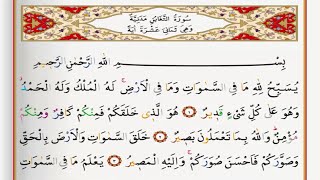 سُورَةُ التَّغَابُنِ مَدَنِيَّةٌ
وَهِيَ ثَمَانِي عَشْرَةَ آيَةً
بِسْمِ اللّٰهِ الرَّحْمٰنِ الرَّحِيمِ
يُسَبِّحُ لِلّٰهِ مَا فِي السَّمٰوَاتِ وَمَا فِي الْاَرْضِۚ لَهُ الْمُلْكُ وَلَهُ الْحَمْدُۘ
وَهُوَ عَلٰى كُلِّ شَيْءٍ قَدِيرٌ ۝ هُوَ الَّذِي خَلَقَكُمْ فَمِنْكُمْ كَافِرٌ وَمِنْكُمْ
مُؤْمِنٌۜ وَاللّٰهُ بِمَا تَعْمَلُونَ بَصِيرٌ ۝ خَلَقَ السَّمٰوَاتِ وَالْاَرْضَ بِالْحَقِّ
وَصَوَّرَكُمْ فَاَحْسَنَ صُوَرَكُمْۚ وَاِلَيْهِ الْمَصِيرُ ۝ يَعْلَمُ مَا فِي السَّمٰوَاتِ